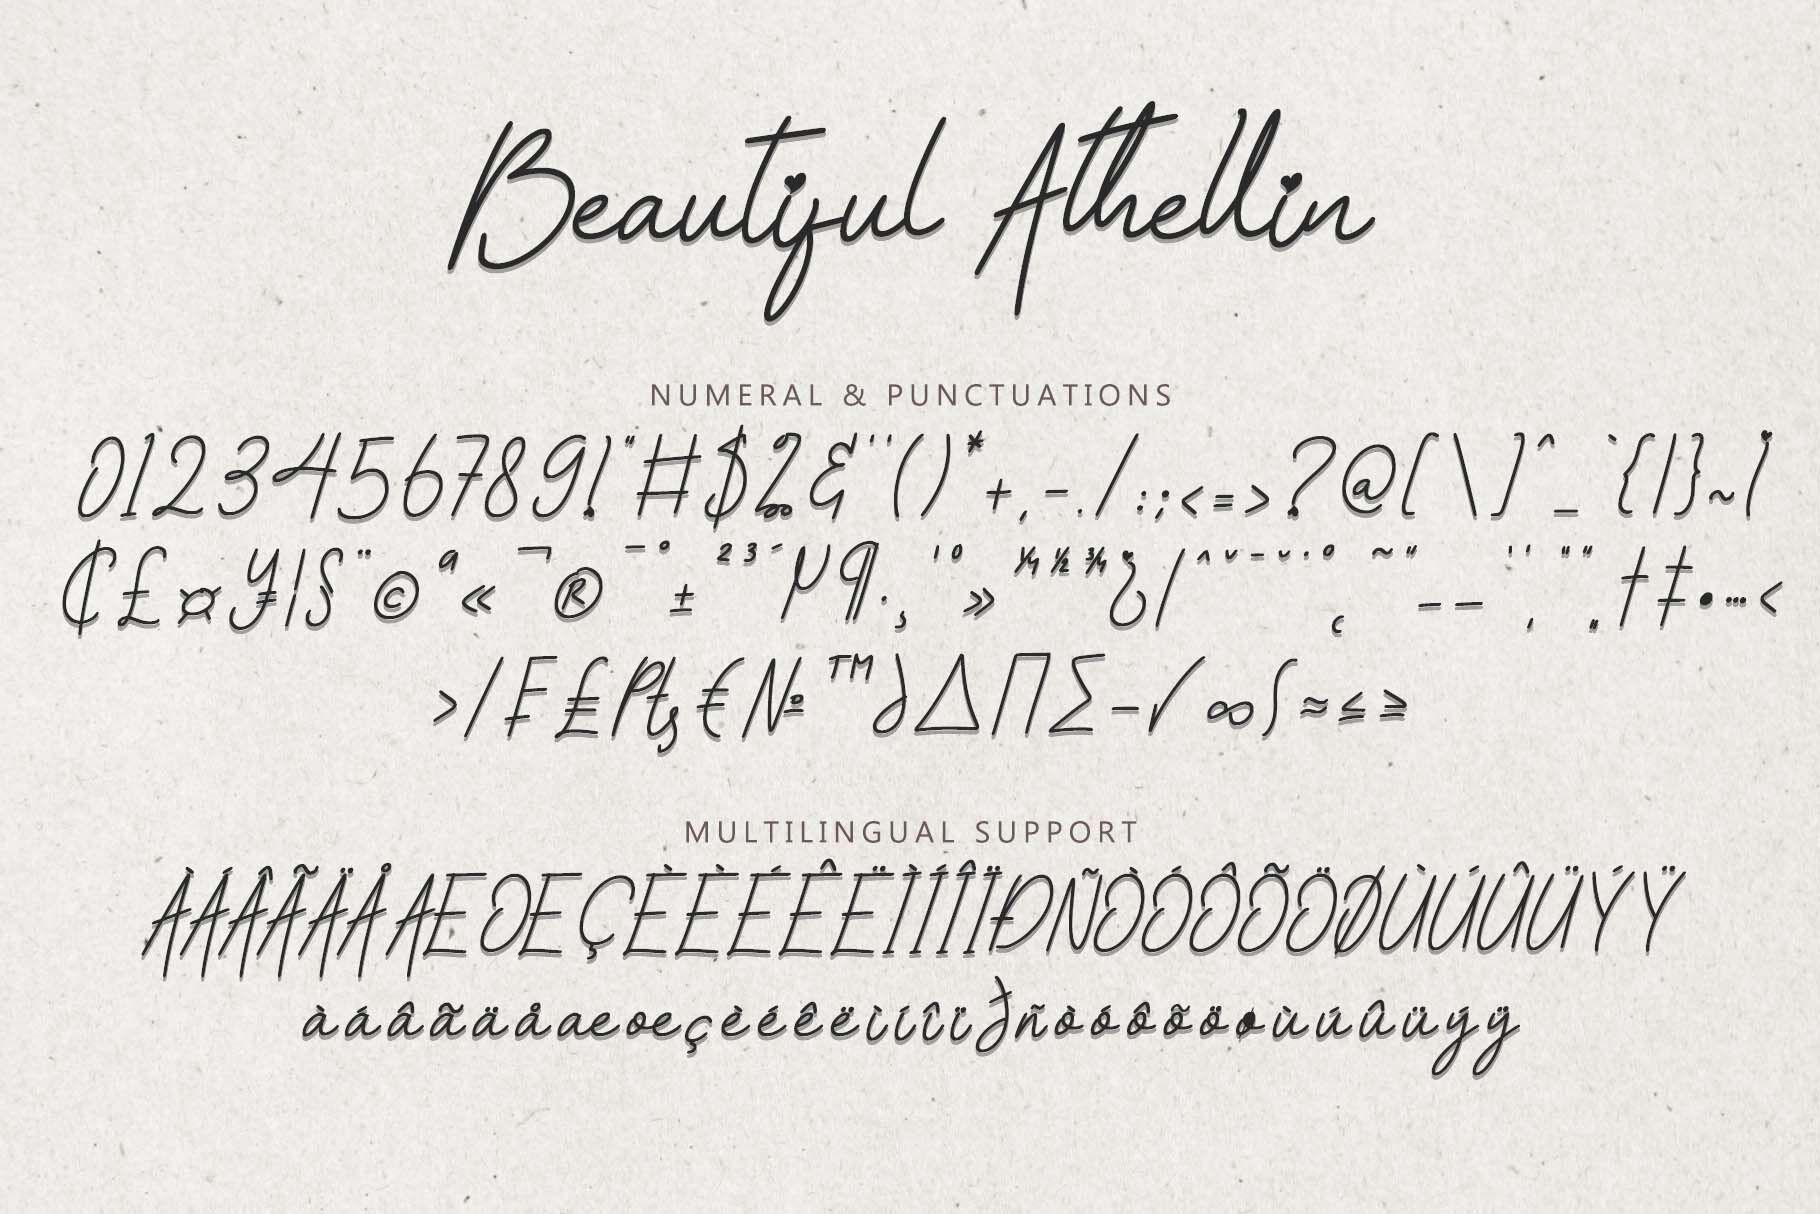 Beautiful Athellin
NUMERAL & PUNCTUATIONS
0123456789!"#$%&''()*+,-./:;<=>?@[\]^_`{|}~¡
¢£¤¥¦§¨©ª«¬®¯°±²³´µ¶·¸¹º»¼½¾¿/ˆˇˉ˘˙˚˛˜˝–—‘’‚“”„†‡•…‹
›⁄₣₤₧€№™∂∆∏∑−√∞∫≈≤≥
MULTILINGUAL SUPPORT
ÀÁÂÃÄÅÆŒÇÈÈÉÊËÌÍÎÏÐÑÒÓÔÕÖØÙÚÛÜÝŸ
àáâãäåæœçèéêëìíîïðñòóôõöøùúûüýÿ